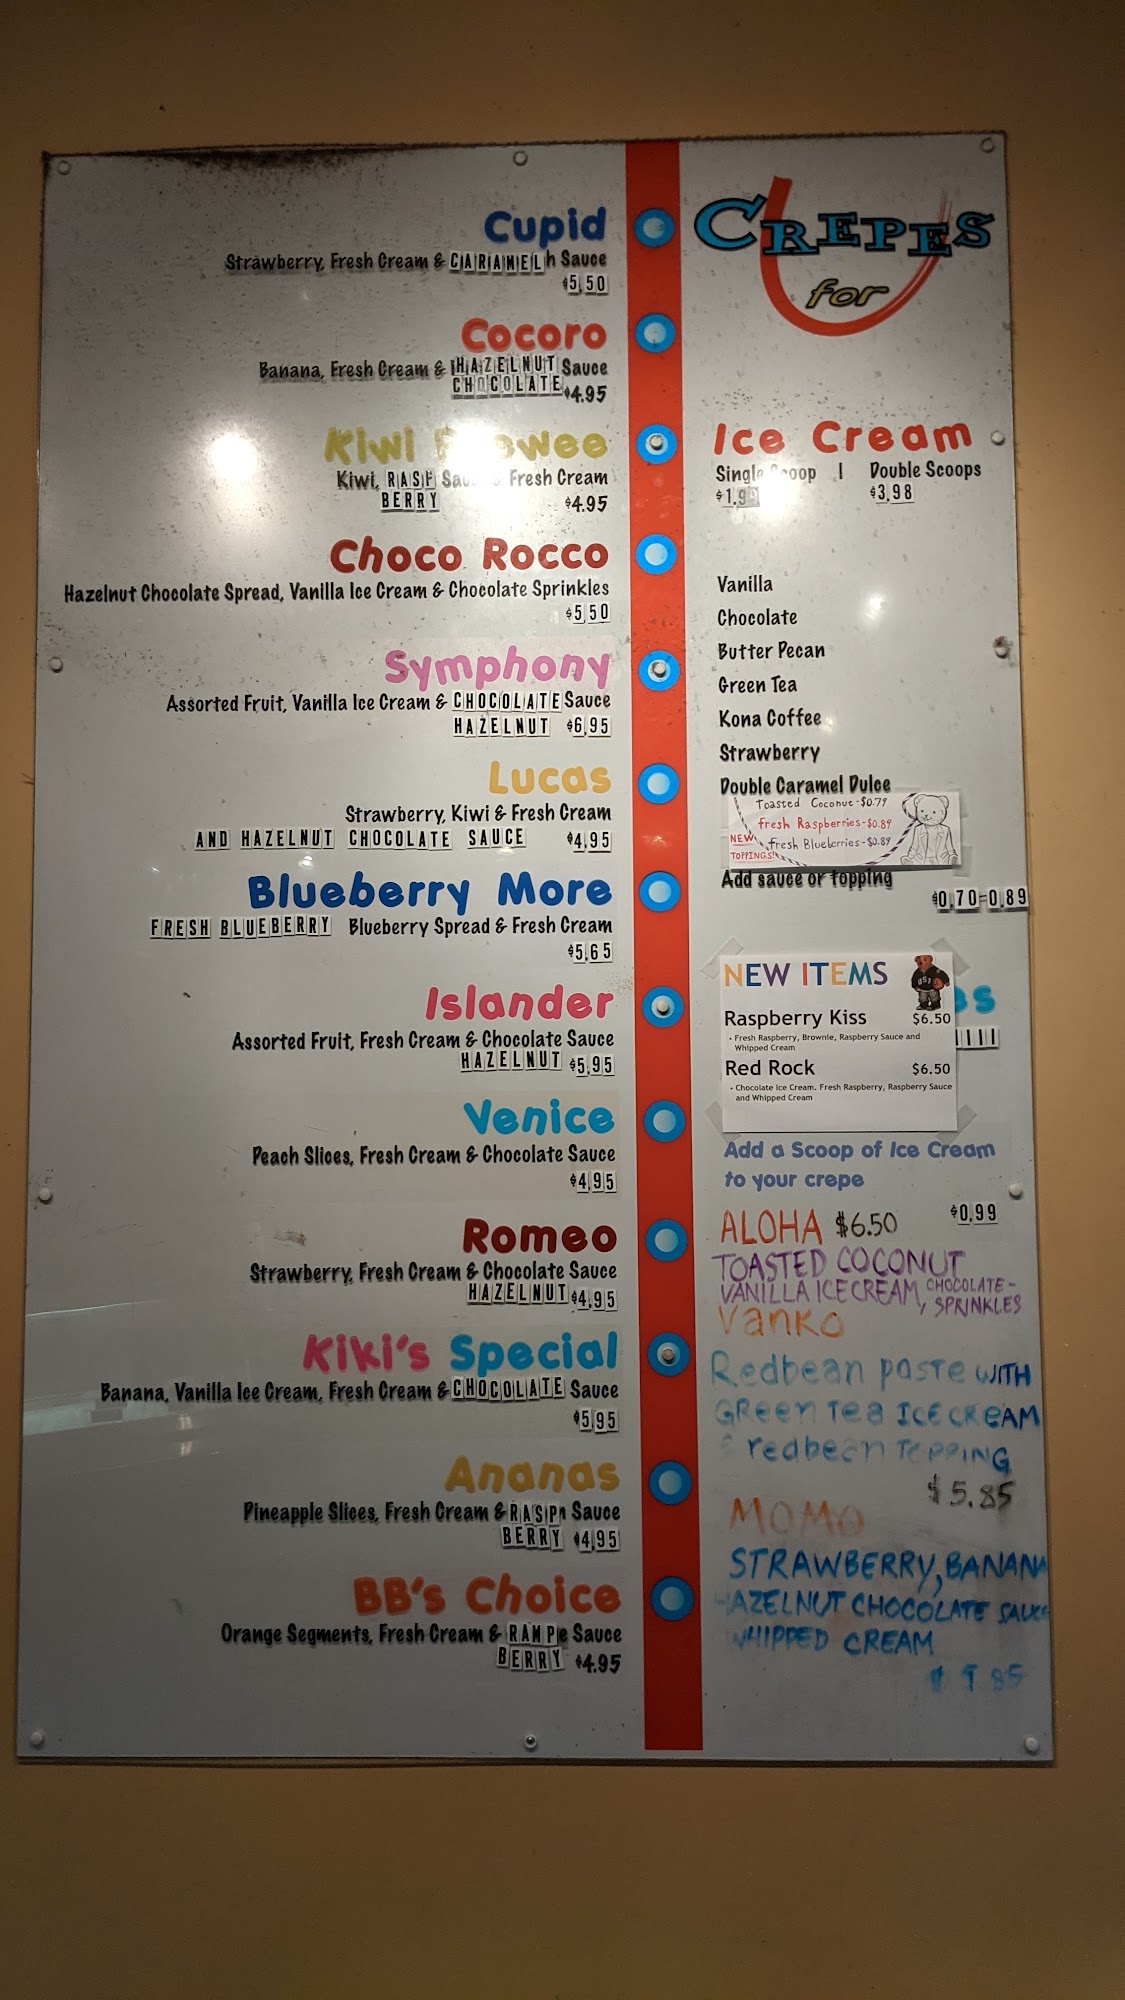 Cupid
Strawberry, Fresh Cream & CARAMEL h Sauce
$5.50
Cocoro
Banana, Fresh Cream & HAZELNUT Sauce
CHOCOLATE $4.95
Kiwi
Kiwi, RASP Fresh Cream
BERRY $4.95
Choco Rocco
Hazelnut Chocolate Spread, Vanilla Ice Cream & Chocolate Sprinkles
$5.50
Symphony
Assorted Fruit, Vanilla Ice Cream & CHOCOLATE Sauce
HAZELNUT $6.95
Lucas
Strawberry, Kiwi & Fresh Cream
AND HAZELNUT CHOCOLATE SAUCE $4.95
Blueberry More
FRESH BLUEBERRY Blueberry Spread & Fresh Cream
$5.65
Islander
Assorted Fruit, Fresh Cream & Chocolate Sauce
HAZELNUT $5.95
Venice
Peach Slices, Fresh Cream & Chocolate Sauce
$4.95
Romeo
Strawberry, Fresh Cream & Chocolate Sauce
HAZELNUT $4.95
Kiki's Special
Banana, Vanilla Ice Cream, Fresh Cream & CHOCOLATE Sauce
$5.95
Ananas
Pineapple Slices, Fresh Cream & RASP Sauce
BERRY $4.95
BB's Choice
Orange Segments, Fresh Cream & Sauce
BERRY $4.95
CREPES
for
Ice Cream
Single Scoop | Double Scoops
$3.98
Vanilla
Chocolate
Butter Pecan
Green Tea
Kona Coffee
Strawberry
Double Caramel Dulce
Toasted Coconut - $0.79
fresh Raspberries - $0.89
NEW fresh Blueberries - $0.89
TOPPINGS!
Add sauce or topping
$0.70-0.89
NEW ITEMS
Raspberry Kiss $6.50
• Fresh Raspberry, Brownie, Raspberry Sauce and
Whipped Cream
Red Rock $6.50
• Chocolate Ice Cream. Fresh Raspberry, Raspberry Sauce
and Whipped Cream
Add a Scoop of Ice Cream
to your crepe
$0.99
ALOHA $6.50
TOASTED COCONUT
VANILLA ICE CREAM, CHOCOLATE-
SPRINKLES
Vanko
Redbean paste WITH
GReen Tea ICE CREAM
& redbean TOPPING
$5.85
MOMO
STRAWBERRY, BANANA
HAZELNUT CHOCOLATE SAUCE
WHIPPED CREAM